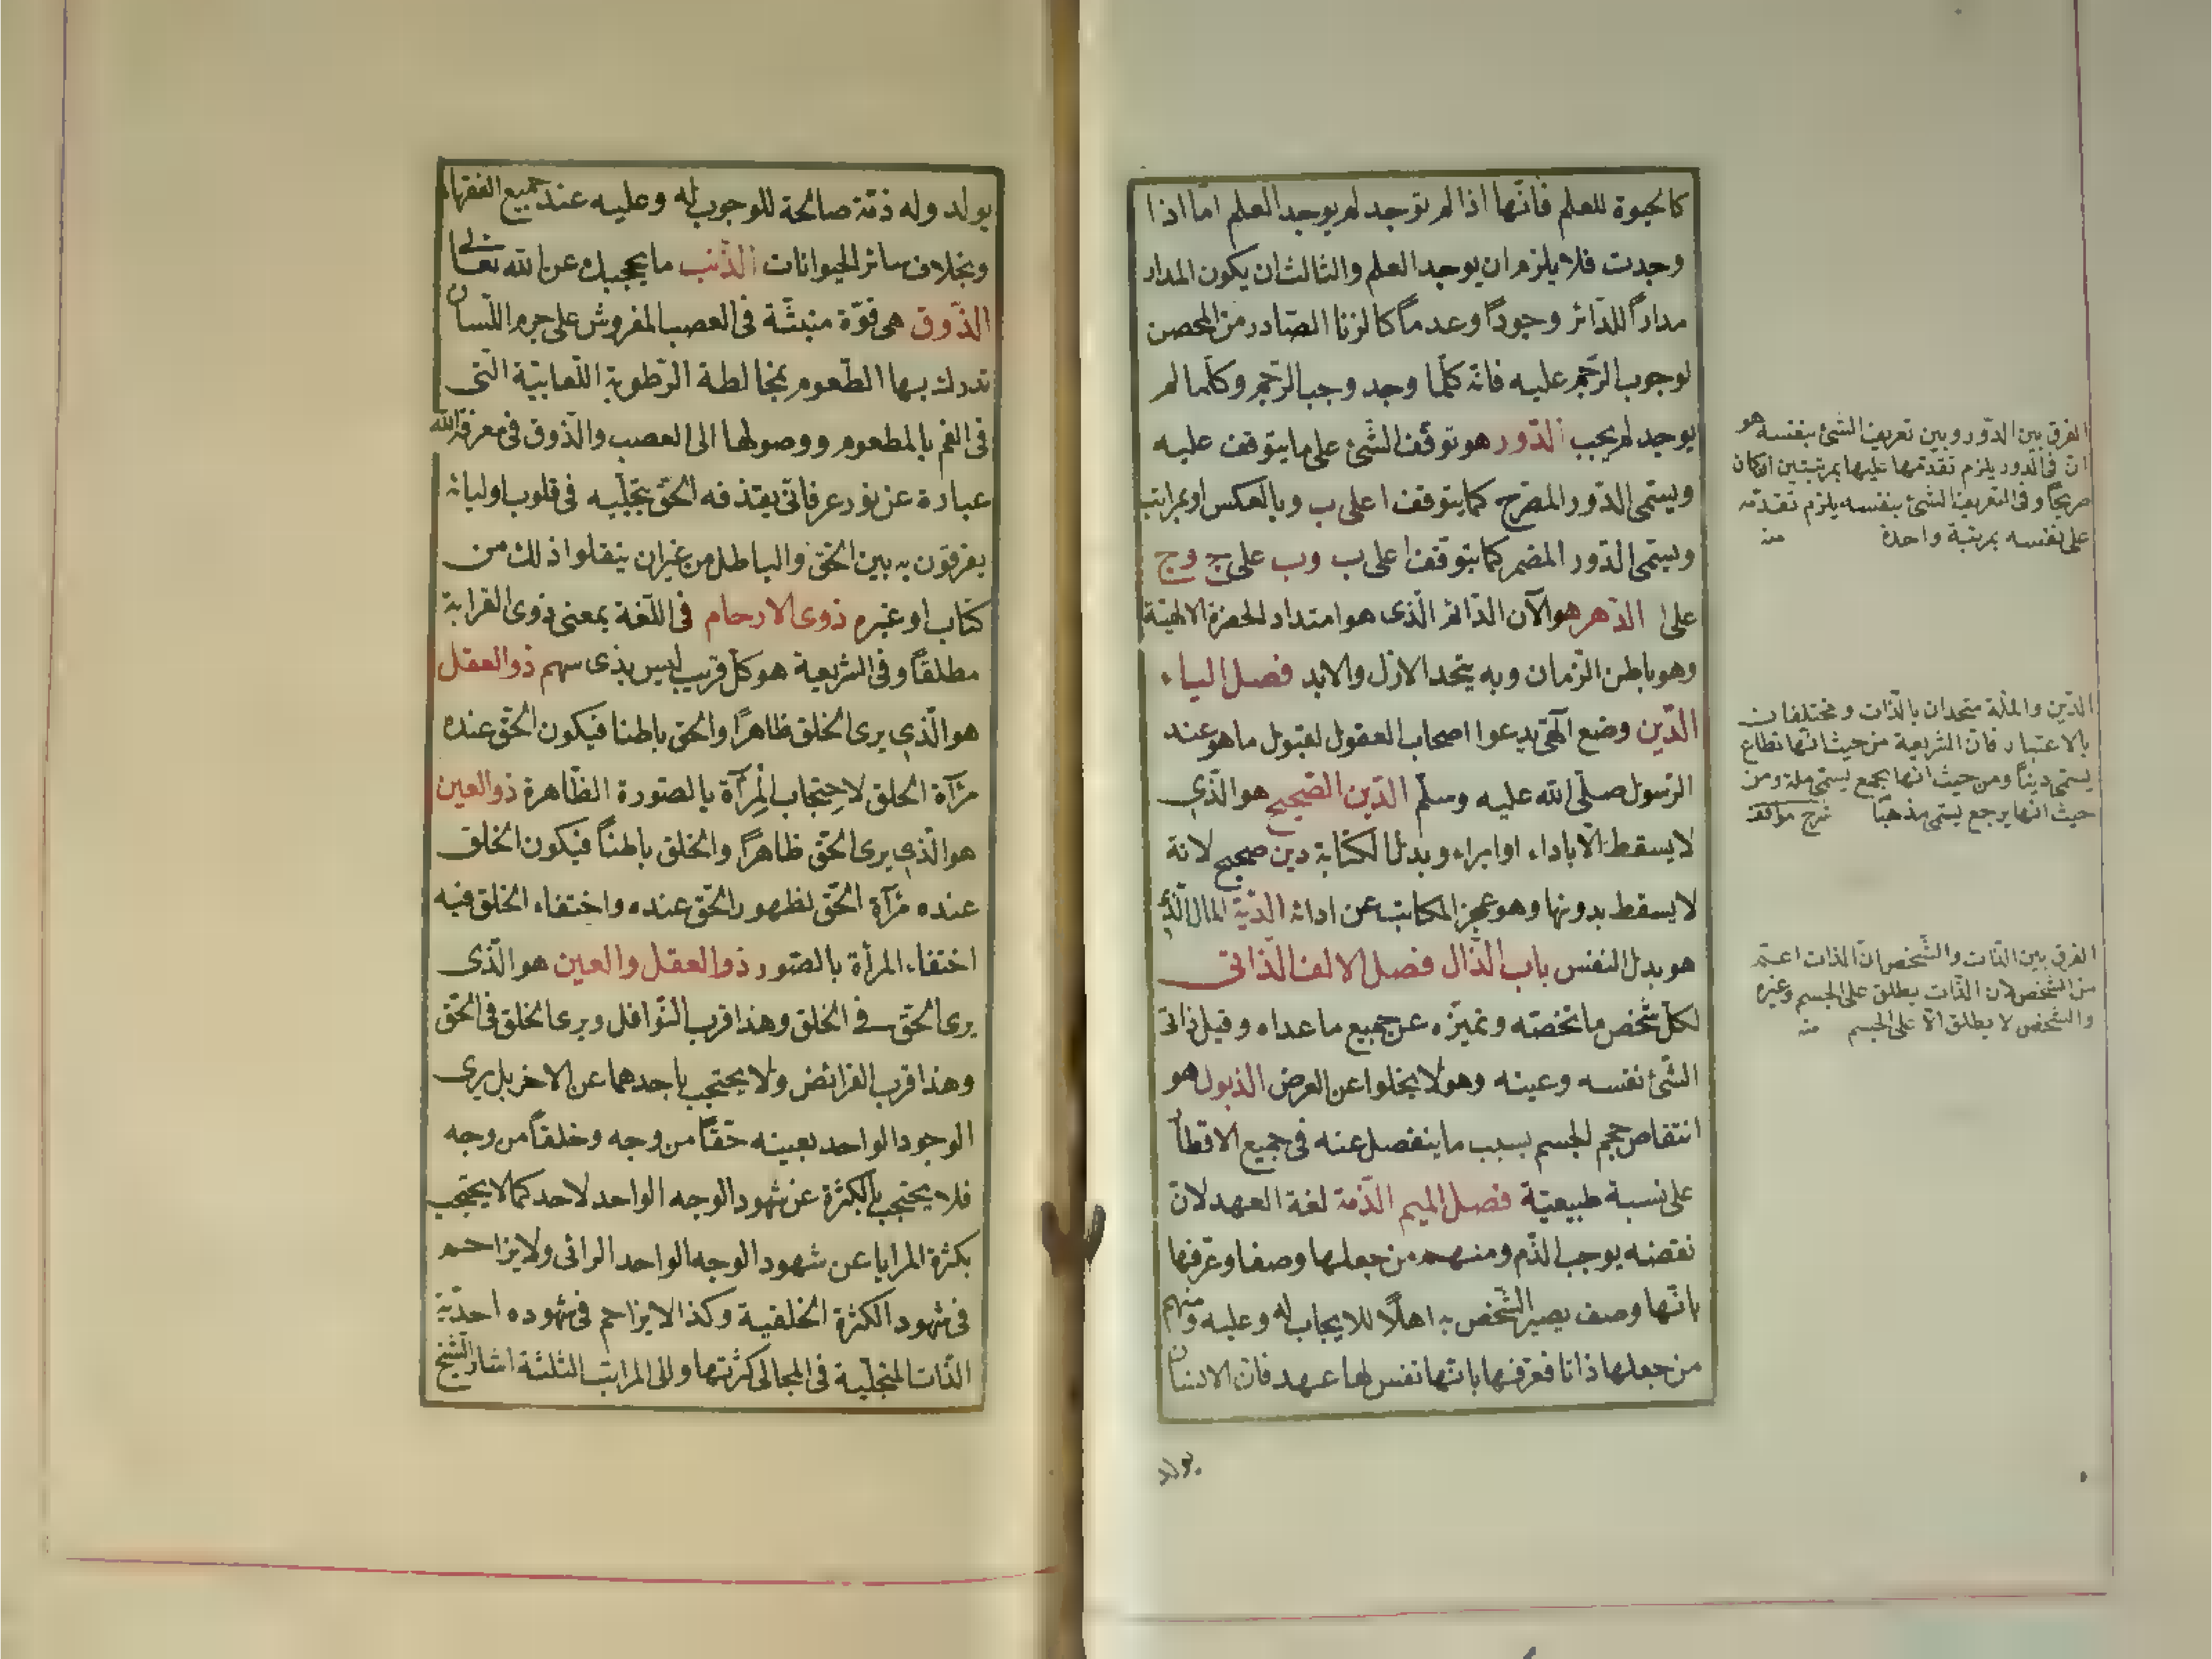 كالحيوة للعلم فانّها اذا لم توجد لم يوجد العلم امّا اذا
وجدت فلا يلزم ان يوجد العلم والثالث ان يكون المدار
مداراً للدّائر وجوداً وعدماً كالزنا الصّادر من المحصن
لوجوب الرّجم عليه فانّه كلّما وجد وجب الرّجم وكلّما لم
يوجد لم يجب الدّور هو توقّف الشّئ على ما يتوقف عليه
ويسمّى الدّور المصرّح كما يتوقف ا على ب وبالعكس او بمراتب
ويسمّى الدّور المضمر كما يتوقّف ا على ب وب على ج وج
على ا الدّهر هو الآن الدّائم الّذى هو امتداد الحضرة الالهيّة
وهو باطن الزّمان وبه يتحد الازل والابد فصل الياء
الدّين وضع آلهّى يدعوا اصحاب العقول لقبول ما هو عند
الرّسول صلّى الله عليه وسلّم الدّين الصّحيح هو الّذى
لا يسقط الّا باداء او ابراء وبدل الكتابة دين صحيح لانّه
لا يسقط بدونها وهو عجز المكاتب عن ادائه الدّية المال الّذى
هو بدل النفس باب الذّال فصل الالف الذّاتى
لكلّ شخص ما تخصّه وتميّزه عن جميع ما عداه وقيل ذاتى
الشّئ نفسه وعينه وهو لا يخلوا عن العرض الذبول هو
انتقاص حجم الجسم بسبب ما ينفصل عنه فى جميع الاقطا
على نسبة طبيعيّة فصل الميم الذّمة لغة العهد لانّ
نقضه يوجب الذّم ومنهم من جعلها وصفا وعرّفها
بانّها وصف يصير الشّخص به اهلاً للايجاب له وعليه ومنهم
من جعلها ذاتا فعرّفها بانّها نفس لها عهد فانّ الانسان
يولد
الفرق بين الدّور وبين تعريف الشّئ بنفسه هو
انّ فى الدور يلزم تقدّمها عليها بمرتبتين ان كان
صريحاً وفى التعريف الشئ بنفسه يلزم تقدّمه
على نفسه بمرتبة واحدة منه
الدّين والملّة متحدان بالذّات ومختلفان
بالاعتبار فانّ الشريعة من حيث انّها تطاع
يسمّى ديناً ومن حيث انّها يجمع يسمّى ملة ومن
حيث انّها يرجع يسمّى مذهبا شرح مواقف
الفرق بين الذّات والشّخص انّ الذات اعمّ
من الشخص لان الذّات يطلق على الجسم وغيره
والشخص لا يطلق الّا على الجسم منه
يولد وله ذمّة صالحة للوجوب له وعليه عند جميع الفقهاء
وبخلاف سائر الحيوانات الذّنب ما يحجبك عن الله تعالى
الذّوق هى قوّة منبثّة فى العصب المفروش على جرم اللّسان
تدرك بها الطّعوم بمخالطة الرّطوبة اللّعابيّة الّتى
فى الفم بالمطعوم ووصولها الى العصب والذّوق فى معرفة الله
عبارة عن نور عرفانّى يقذفه الحقّ بتجلّيه فى قلوب اوليائه
يفرّقون به بين الحقّ والباطل من غير ان ينقلوا ذلك من
كتاب او غيره ذوى الارحام فى اللّغة بمعنى ذوى القرابة
مطلقاً وفى الشريعة هو كلّ قريب ليس بذى سهم ذو العقل
هو الّذى يرى الخلق ظاهراً والحق باطنا فيكون الحقّ عنده
مرآة الخلق لاحتجاب المرآة بالصّورة الظّاهرة ذو العين
هو الّذى يرى الحقّ ظاهراً والخلق باطناً فيكون الخلق
عنده مرآة الحقّ لظهور الحقّ عنده واختفاء الخلق فيه
اختفاء المرأة بالصّور ذو العقل والعين هو الّذى
يرى الحقّ فى الخلق وهذا قرب النّوافل ويرى الخلق فى الحقّ
وهذا قرب الفرائض ولا يحتجب باحدهما عن الاخر بل يرى
الوجود الواحد بعينه حقّاً من وجه وخلقاً من وجه
فلا يحتجب بالكثرة عن شهود الوجه الواحد لاحد كما لا يحتجب
بكثرة المرايا عن شهود الوجه الواحد الرائى ولا يزاحم
فى شهود الكثرة الخلقية وكذا لا يزاحم فى شهوده احدّية
الذّات المتجلّية فى المجالى كثرتها والى المراتب الثلثة اشار الشّيخ